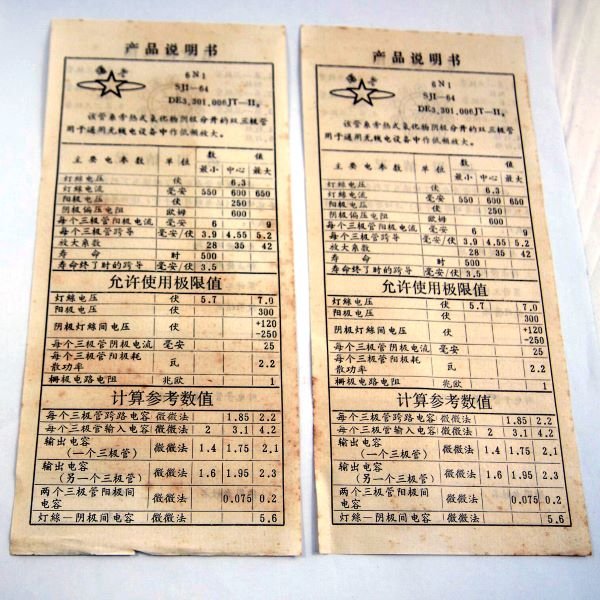 产品说明书
6N1
SJI-64
DE3.301.006JT-II。
该管系旁热式氧化物阴极分开的双三极管
用于通用无线电设备中作低频放大。
主要电参数 单位 数值
最小 中心 最大
灯丝电压 伏 6.3
灯丝电流 毫安 550 600 650
阳极电压 伏 250
阴极偏压电阻 欧姆 600
每个三极管阳极电流 毫安 6 9
每个三极管跨导 毫安/伏 3.9 4.55 5.2
放大系数 28 35 42
寿命 时 500
寿命终了时的跨导 毫安/伏 3.5
允许使用极限值
灯丝电压 伏 5.7 7.0
阳极电压 伏 300
阴极灯丝间电压 伏 +120
-250
每个三极管阴极电流 毫安 25
每个三极管阳极耗
散功率 瓦 2.2
栅极电路电阻 兆欧 1
计算参考数值
每个三极管跨路电容 微微法 1.85 2.2
每个三极管输入电容 微微法 2 3.1 4.2
输出电容
(一个三极管) 微微法 1.4 1.75 2.1
输出电容
(另一个三极管) 微微法 1.6 1.95 2.3
两个三极管阳极间
电容 微微法 0.075 0.2
灯丝-阴极间电容 微微法 5.6
产品说明书
6N1
SJI-64
DE3.301.006JT-II。
该管系旁热式氧化物阴极分开的双三极管
用于通用无线电设备中作低频放大。
主要电参数 单位 数值
最小 中心 最大
灯丝电压 伏 6.3
灯丝电流 毫安 550 600 650
阳极电压 伏 250
阴极偏压电阻 欧姆 600
每个三极管阳极电流 毫安 6 9
每个三极管跨导 毫安/伏 3.9 4.55 5.2
放大系数 28 35 42
寿命 时 500
寿命终了时的跨导 毫安/伏 3.5
允许使用极限值
灯丝电压 伏 5.7 7.0
阳极电压 伏 300
阴极灯丝间电压 伏 +120
-250
每个三极管阴极电流 毫安 25
每个三极管阳极耗
散功率 瓦 2.2
栅极电路电阻 兆欧 1
计算参考数值
每个三极管跨路电容 微微法 1.85 2.2
每个三极管输入电容 微微法 2 3.1 4.2
输出电容
(一个三极管) 微微法 1.4 1.75 2.1
输出电容
(另一个三极管) 微微法 1.6 1.95 2.3
两个三极管阳极间
电容 微微法 0.075 0.2
灯丝-阴极间电容 微微法 5.6